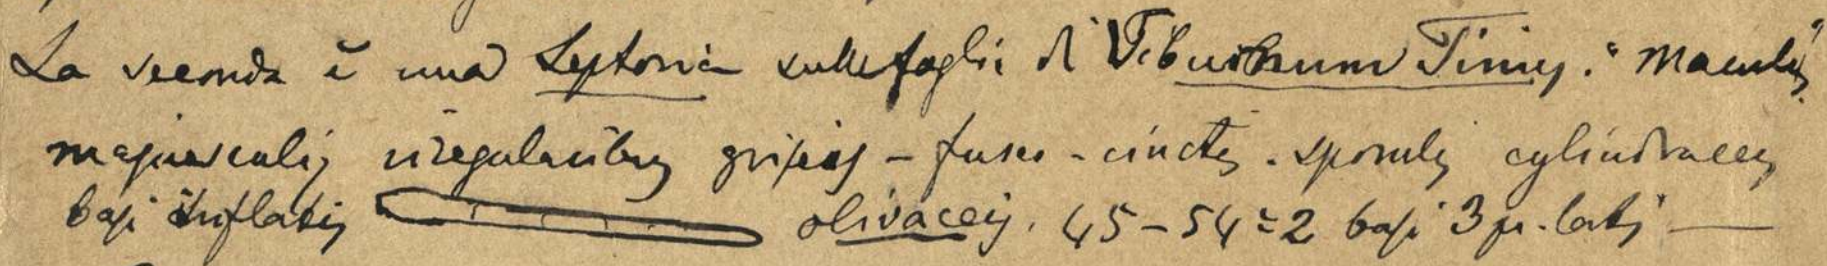 La seconda è una Septoria sulle foglie di Viburnum Tinus. "Maculis
majusculis irregularibus griseis - fusco - cinctis. sporulis cylindraceis
basi inflatis olivaceis. 45-54=2 basi 3 μ. latis —